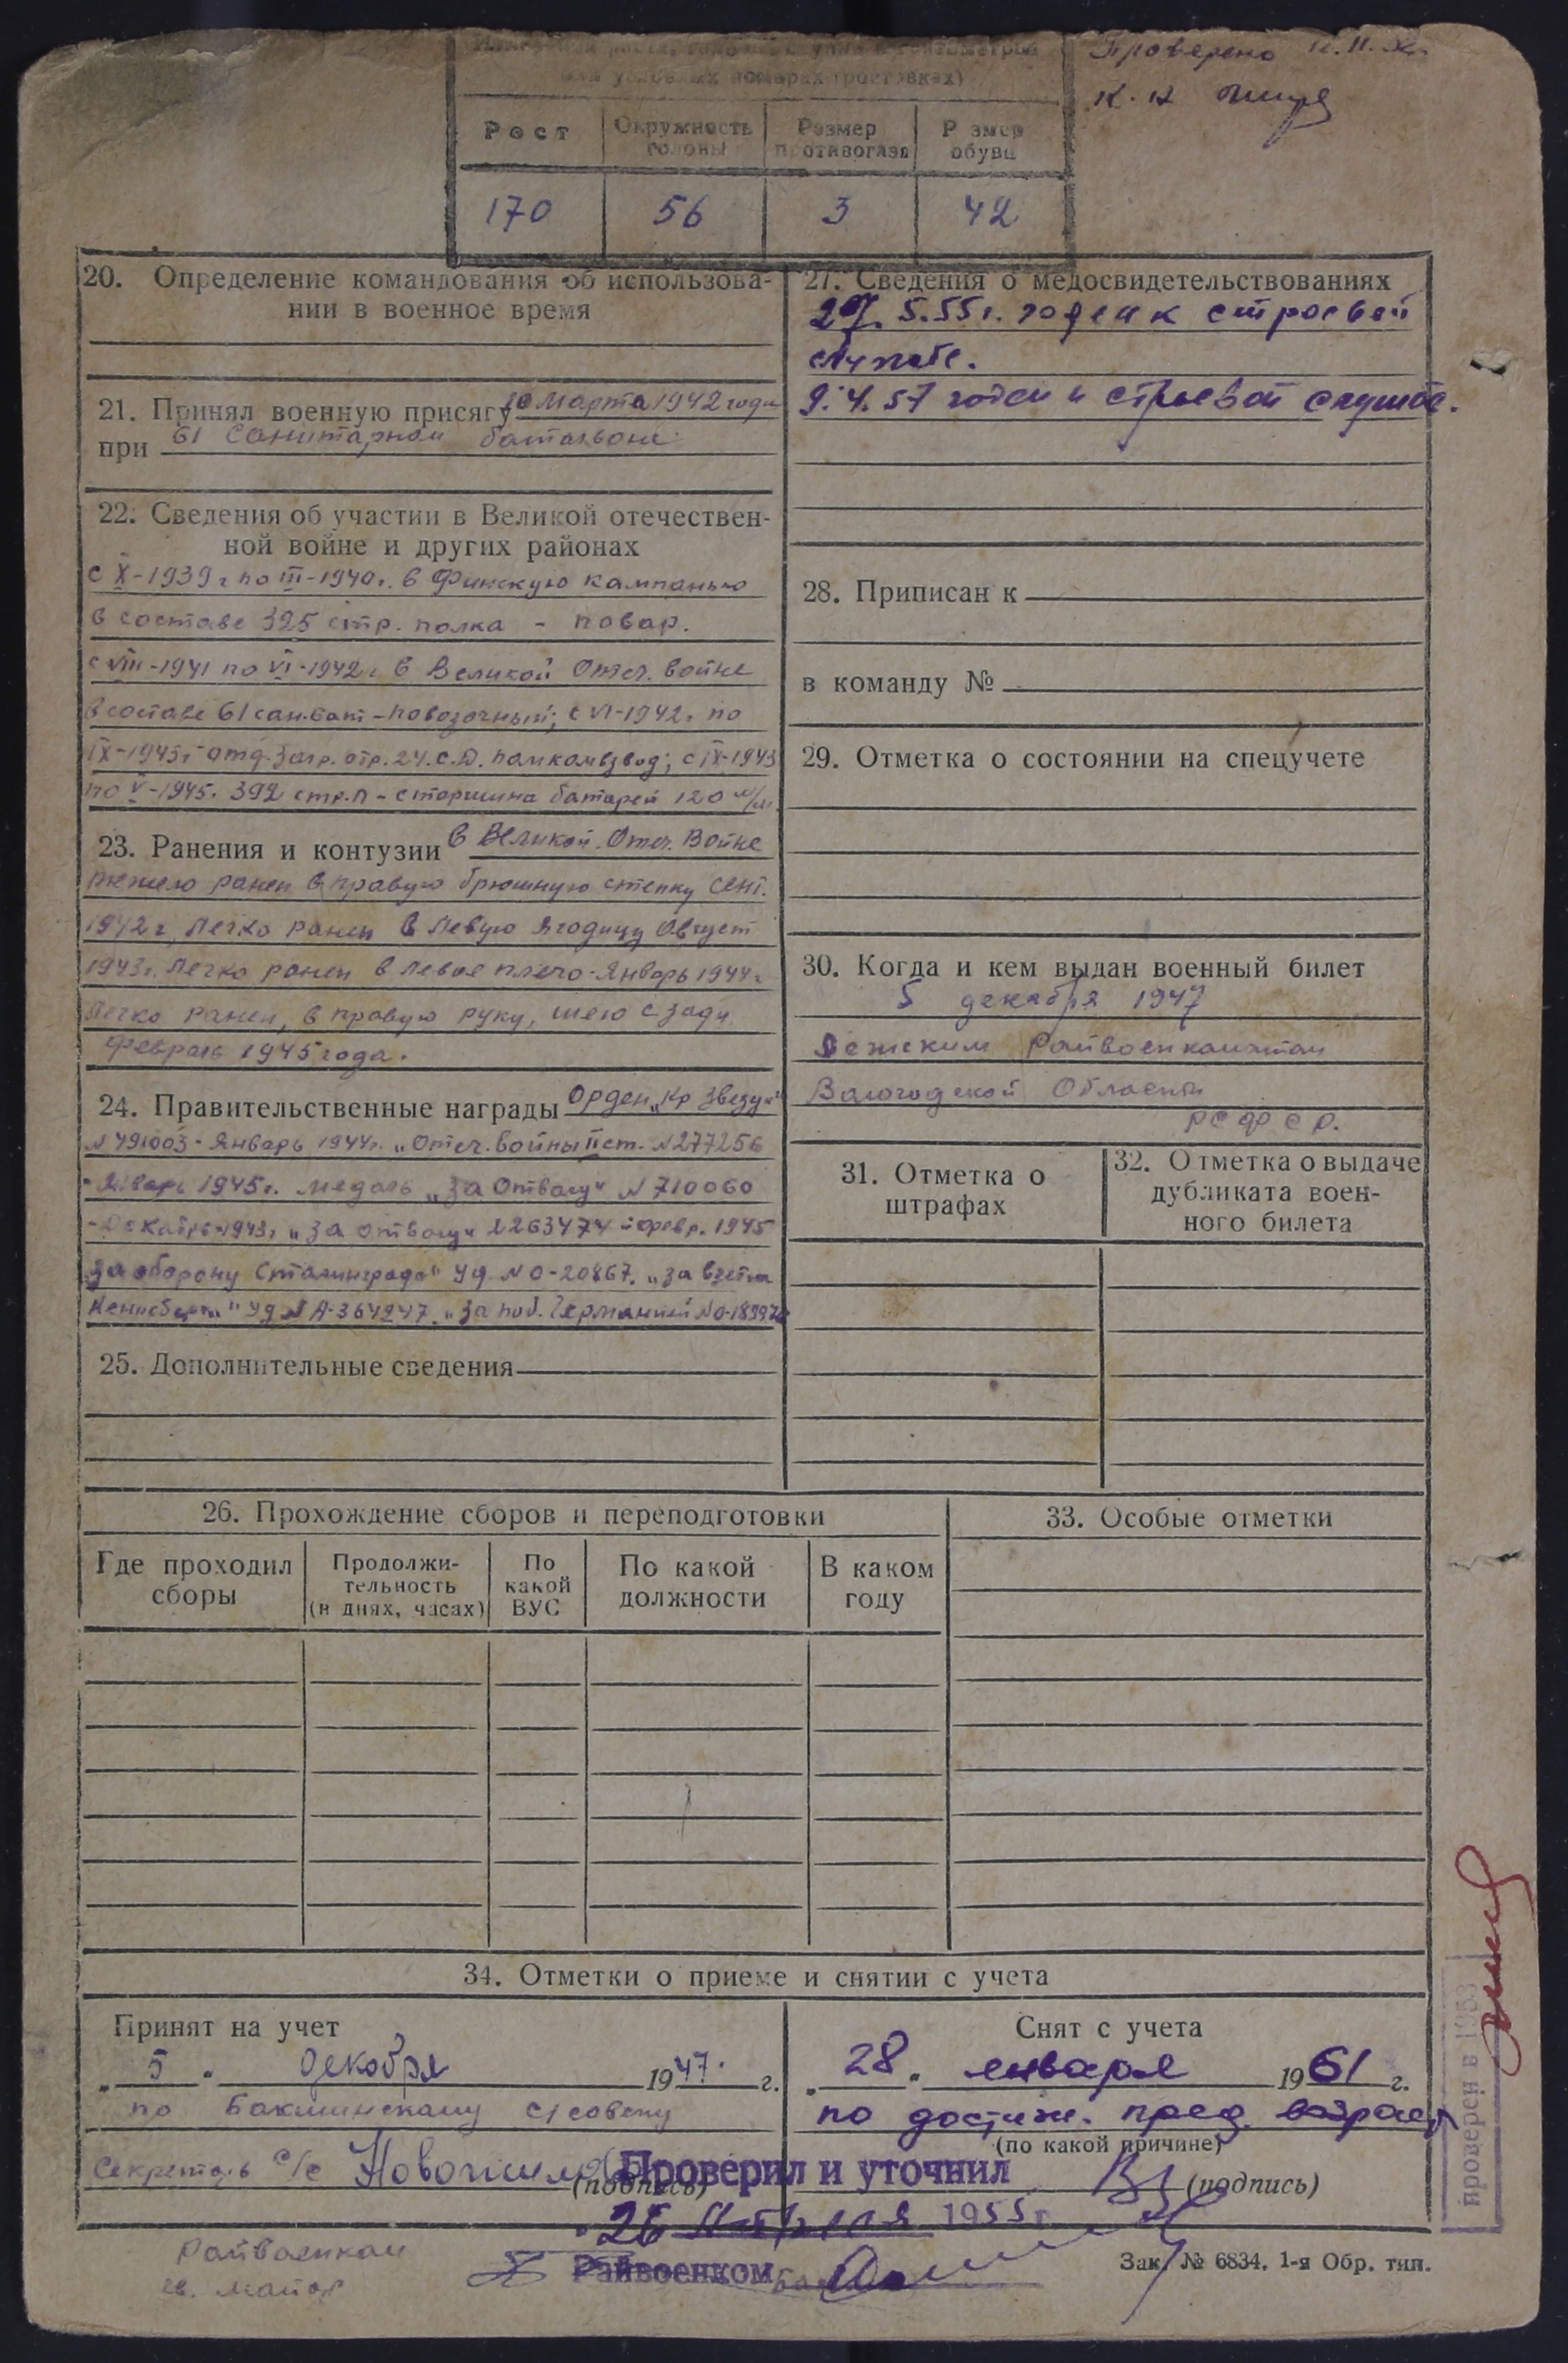 или условных номерах (ростовках)
Проверено
Рост
Окружность головы
Размер противогаза
Размер обуви
170 56 3 42
20. Определение командования об использова-
нии в военное время
21. Принял военную присягу 10 Марта 1942 года
при 61 Санитарном батальоне
22. Сведения об участии в Великой отечествен-
ной войне и других районах
с X-1939 г по III-1940 г. в Финскую кампанью
в составе 325 стр. полка - повар.
с VIII-1941 по VI-1942 г. в Великой Отеч. войне
в составе 61 сан.бат - повозочный; с VI-1942 г. по
IX-1943 г отд. загр. отр. 24. с.д. помкомвзвод; с IX-1943
по V-1945. 392 стр.п - старшина батареи 120 м/м.
23. Ранения и контузии в Великой Отеч. Войне
тяжело ранен в правую брюшную стенку сент.
1942 г, легко ранен в левую ягодицу август
1943 г. легко ранен в левое плечо - январь 1944 г
легко ранен, в правую руку, шею сзади
февраль 1945 года.
24. Правительственные награды Орден „Кр Звезды"
N 491003 - январь 1944 г. „Отеч. войны II ст. N 277256
- Январь 1945 г. медаль „За Отвагу" N 710060
- Декабрь 1943 г „За отвагу" 2263474 - февр. 1945
За оборону Сталинграда" Уд. N О-20867. „За взятие
Кенигсберга" Уд N А-364247. „За поб. Германией N О-
25. Дополнительные сведения
26. Прохождение сборов и переподготовки
Где проходил сборы
Продолжи-
тельность
(в днях, часах)
По
какой
ВУС
По какой
должности
В каком
году
27. Сведения о медосвидетельствованиях
27. 5.55 г. годен к строевой
службе.
9.4.57 годен к строевой службе.
28. Приписан к
в команду №
29. Отметка о состоянии на спецучете
30. Когда и кем выдан военный билет
5 декабря 1947
Райвоенкоматом
Вологодской Области
РСФСР.
31. Отметка о
штрафах
32. Отметка о выдаче
дубликата воен-
ного билета
33. Особые отметки
34. Отметки о приеме и снятии с учета
Принят на учет
„ 5 " декабря 1947 г.
по Бакшинскому с/совету
Секретарь с/с
(подпись)
Снят с учета
„ 28 " января 1961 г.
по достиж. пред. возраст
(по какой причине)
(подпись)
Проверил и уточнил
„26 1955 г.
Райвоенком
Райвоенком
майор
Зак. № 6834. 1-я Обр. тип.
проверен в 1953